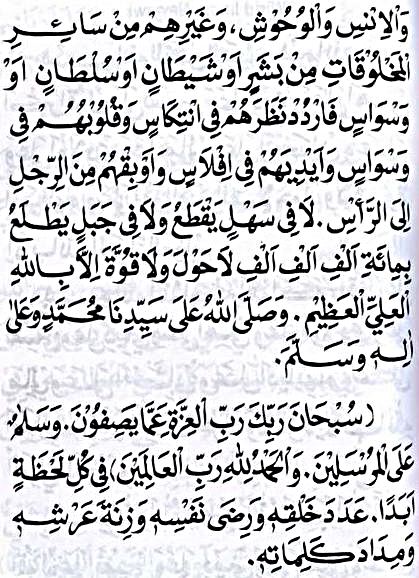 وَالْاِنْسِ وَالْوُحُوْشِ، وَغَيْرِهِمْ مِنْ سَائِرِ
الْمَخْلُوْقَاتِ مِنْ بَشَرٍ اَوْ شَيْطَانٍ اَوْ سُلْطَانٍ اَوْ
وَسْوَاسٍ فَارْدُدْ نَظَرَهُمْ فِى انْتِكَاسٍ وَقُلُوْبَهُمْ فِى
وَسْوَاسٍ وَاَيْدِيَهُمْ فِى اِفْلَاسٍ وَاَوْبِقْهُمْ مِنَ الرِّجْلِ
اِلَى الرَّأْسِ. لَا فِى سَهْلٍ يَقْطَعُ وَلَا فِى جَبَلٍ يَطْلَعُ
بِمِائَةِ اَلْفِ اَلْفِ اَلْفِ لَاحَوْلَ وَلَا قُوَّةَ اِلَّا بِاللهِ
الْعَلِيِّ الْعَظِيْمِ. وَصَلَّى اللهُ عَلَى سَيِّدِنَا مُحَمَّدٍ وَعَلَى
اٰلِهِ وَسَلَّمَ.
(سُبْحَانَ رَبِّكَ رَبِّ الْعِزَّةِ عَمَّا يَصِفُوْنَ. وَسَلَامٌ
عَلَى الْمُرْسَلِيْنَ. وَالْحَمْدُ لِلهِ رَبِّ الْعَالَمِيْنَ) فِى كُلِّ لَحْظَةٍ
اَبَدًا. عَدَدَ خَلْقِهِ وَرِضَى نَفْسِهِ وَزِنَةَ عَرْشِهِ
وَمِدَادَ كَلِمَاتِهِ.